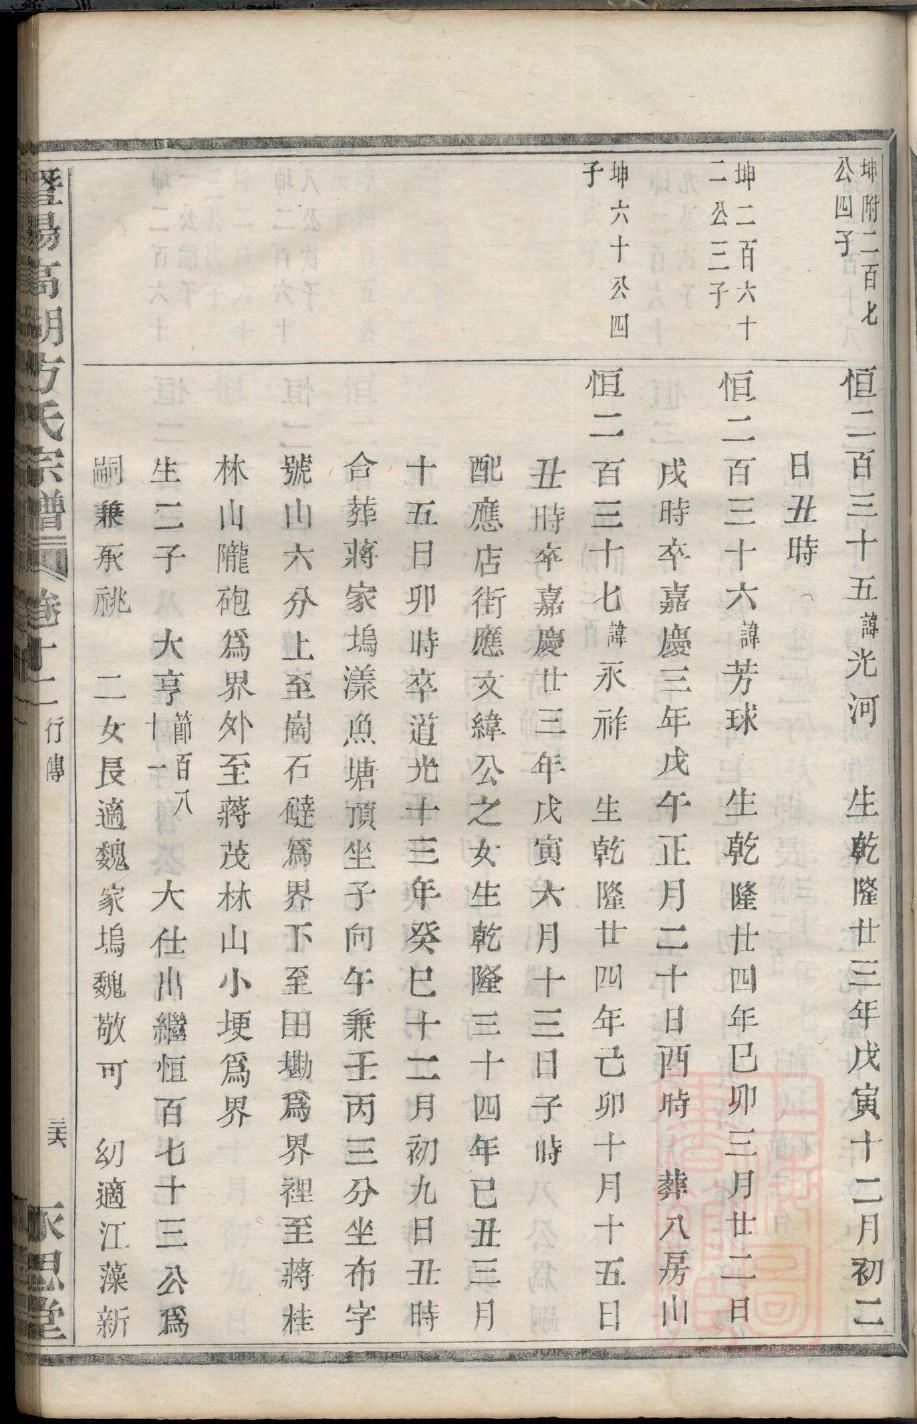 坤附二百七
公四子
恒二百三十五諱光河　生乾隆廿三年戊寅十二月初二
日丑時
坤二百六十
二公三子
恒二百三十六諱芳球　生乾隆廿四年巳卯三月廿二日
戌時卒嘉慶三年戊午正月二十日酉時　葬八房山
坤六十公四
子
恒二百三十七諱永祚　生乾隆廿四年己卯十月十五日
丑時卒嘉慶廿三年戊寅六月十三日子時
配應店街應文緯公之女生乾隆三十四年已丑三月
十五日卯時卒道光十三年癸巳十二月初九日丑時
合葬蔣家塢漾魚塘頂坐子向午兼壬丙三分坐布字
號山六分上至崗石㙮爲界下至田墈爲界裡至蔣桂
林山隴砲爲界外至蔣茂林山小埂爲界
生二子　大亨節百八十一　大仕出繼恒百七十三公爲
嗣兼承祧　二女長適魏家塢魏敬可　幼適江藻新
暨陽高湖方氏宗譜　卷十二　行傳　三六　永思堂